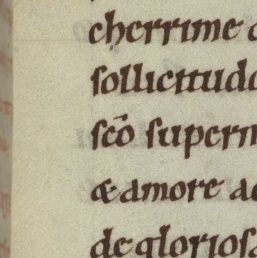 cherrime
sollicitud
sc̄o supern
& amore a
de glorios